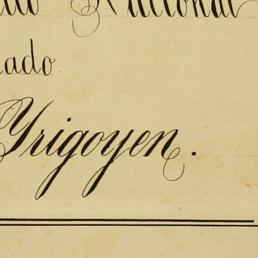 Nacional
ado.
Yrigoyen.